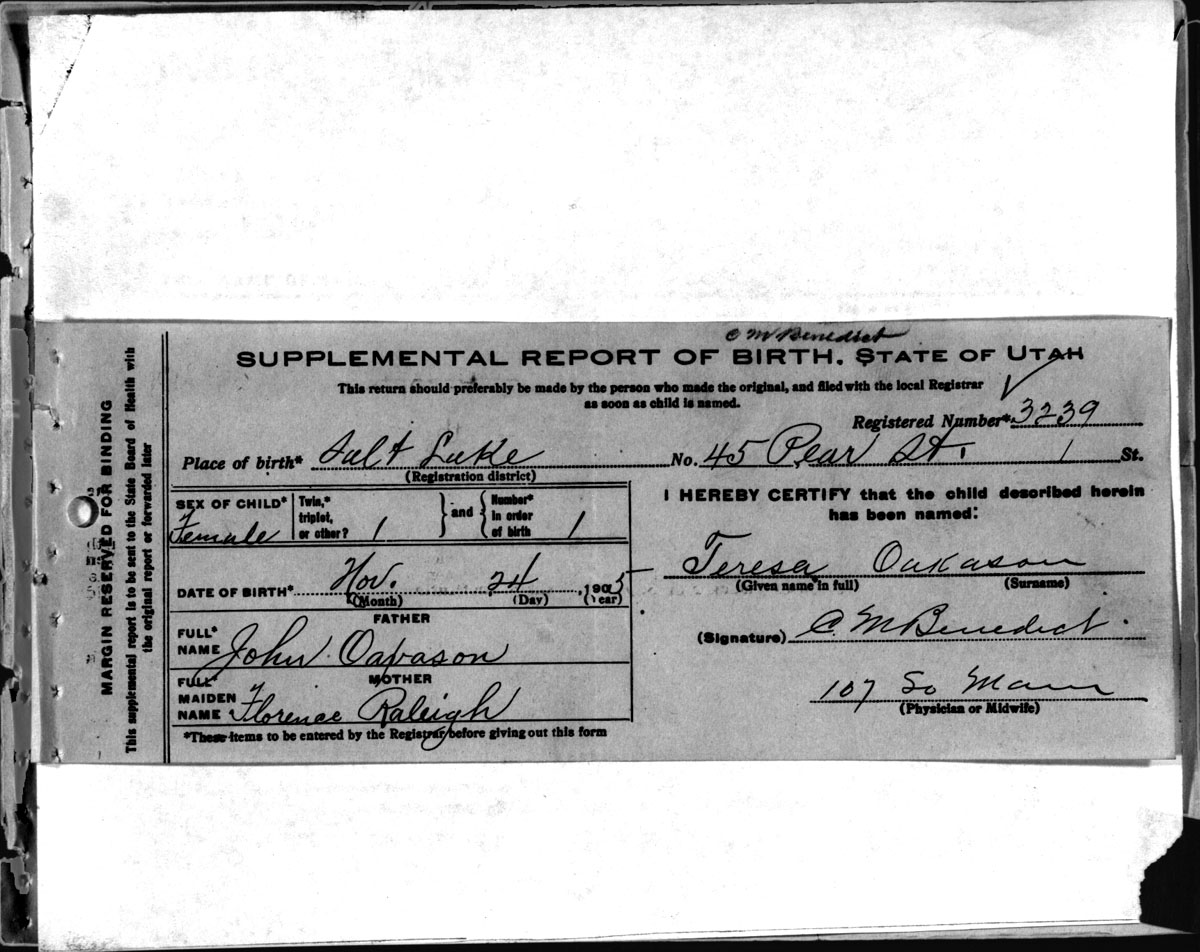 C M Benedict
SUPPLEMENTAL REPORT OF BIRTH. STATE OF UTAH
This return should preferably be made by the person who made the original, and filed with the local Registrar
as soon as child is named.
Registered Number* 3239
Place of birth* Salt Lake No. 45 Pear St. 1 St.
(Registration district)
SEX OF CHILD* Female
Twin,* triplet, or other? 1 } and { Number* in order of birth 1
DATE OF BIRTH* Nov. 24 1903
(Month) (Day) (Year)
FATHER
FULL* NAME John Oavason
MOTHER
FULL* MAIDEN NAME Florence Raleigh
*These items to be entered by the Registrar before giving out this form
I HEREBY CERTIFY that the child described herein
has been named:
Teresa Oakason
(Given name in full) (Surname)
(Signature) C. M Benedict.
107 So Main
(Physician or Midwife)
MARGIN RESERVED FOR BINDING
This supplemental report is to be sent to the State Board of Health with
the original report or forwarded later